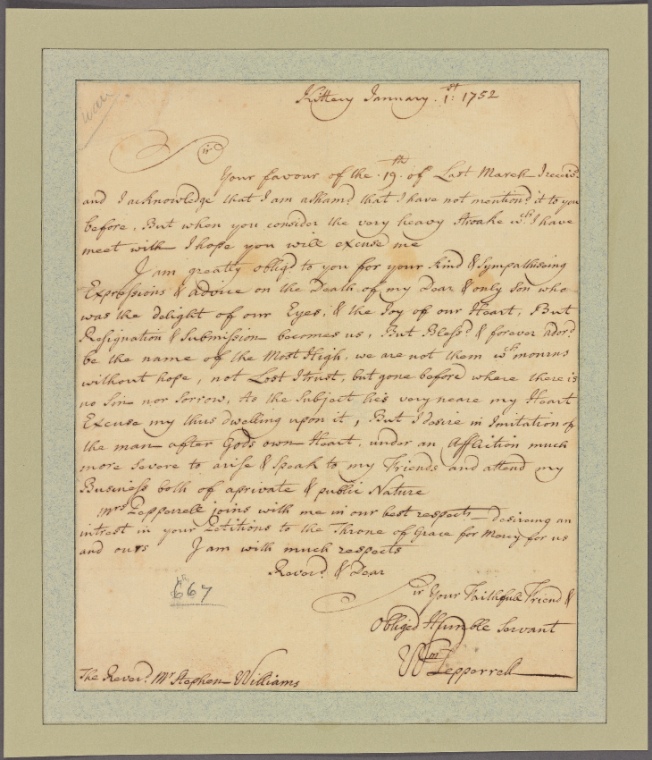 Kittery January. 1:st 1752
Sir
Your favour of the .19.th of Last March I receivd.
and I acknowledge that I am asham'd that I have not mention'd it to you
before. But when you consider the very heavy Stroake wch. I have
meet with I hope you will excuse me
I am greatly oblig'd to you for your kind & Sympathiseing
Expressions & advice on the Death of my Dear & only son who
was the delight of our Eyes, & the Joy of our Heart, But
Resignation & Submission becomes us, But Bless'd & forever ador'd
be the name of the Most High. we are not them wch mourns
without hope, not Lost I trust, but gone before where there is
no Sin nor Sorrow, As the Subject lies very neare my Heart
Excuse my thus dwelling upon it, But I desire in Imitation of
the man after Gods own Heart, under an Affliction much
more Severe to arise & Speak to my Friends and attend my
Business both of a private & public Nature
Mrs. Pepperrell joins with me in our best respects Desireing an
intrest in your Petitions to the Throne of Grace for Mercy for us
and ours I am with much respects
Reverd. & Dear
Sir Your Faithfull Friend &
Obliged Humble Servant
Wm Pepperrell
667
The Reverd. Mr Stephen Williams